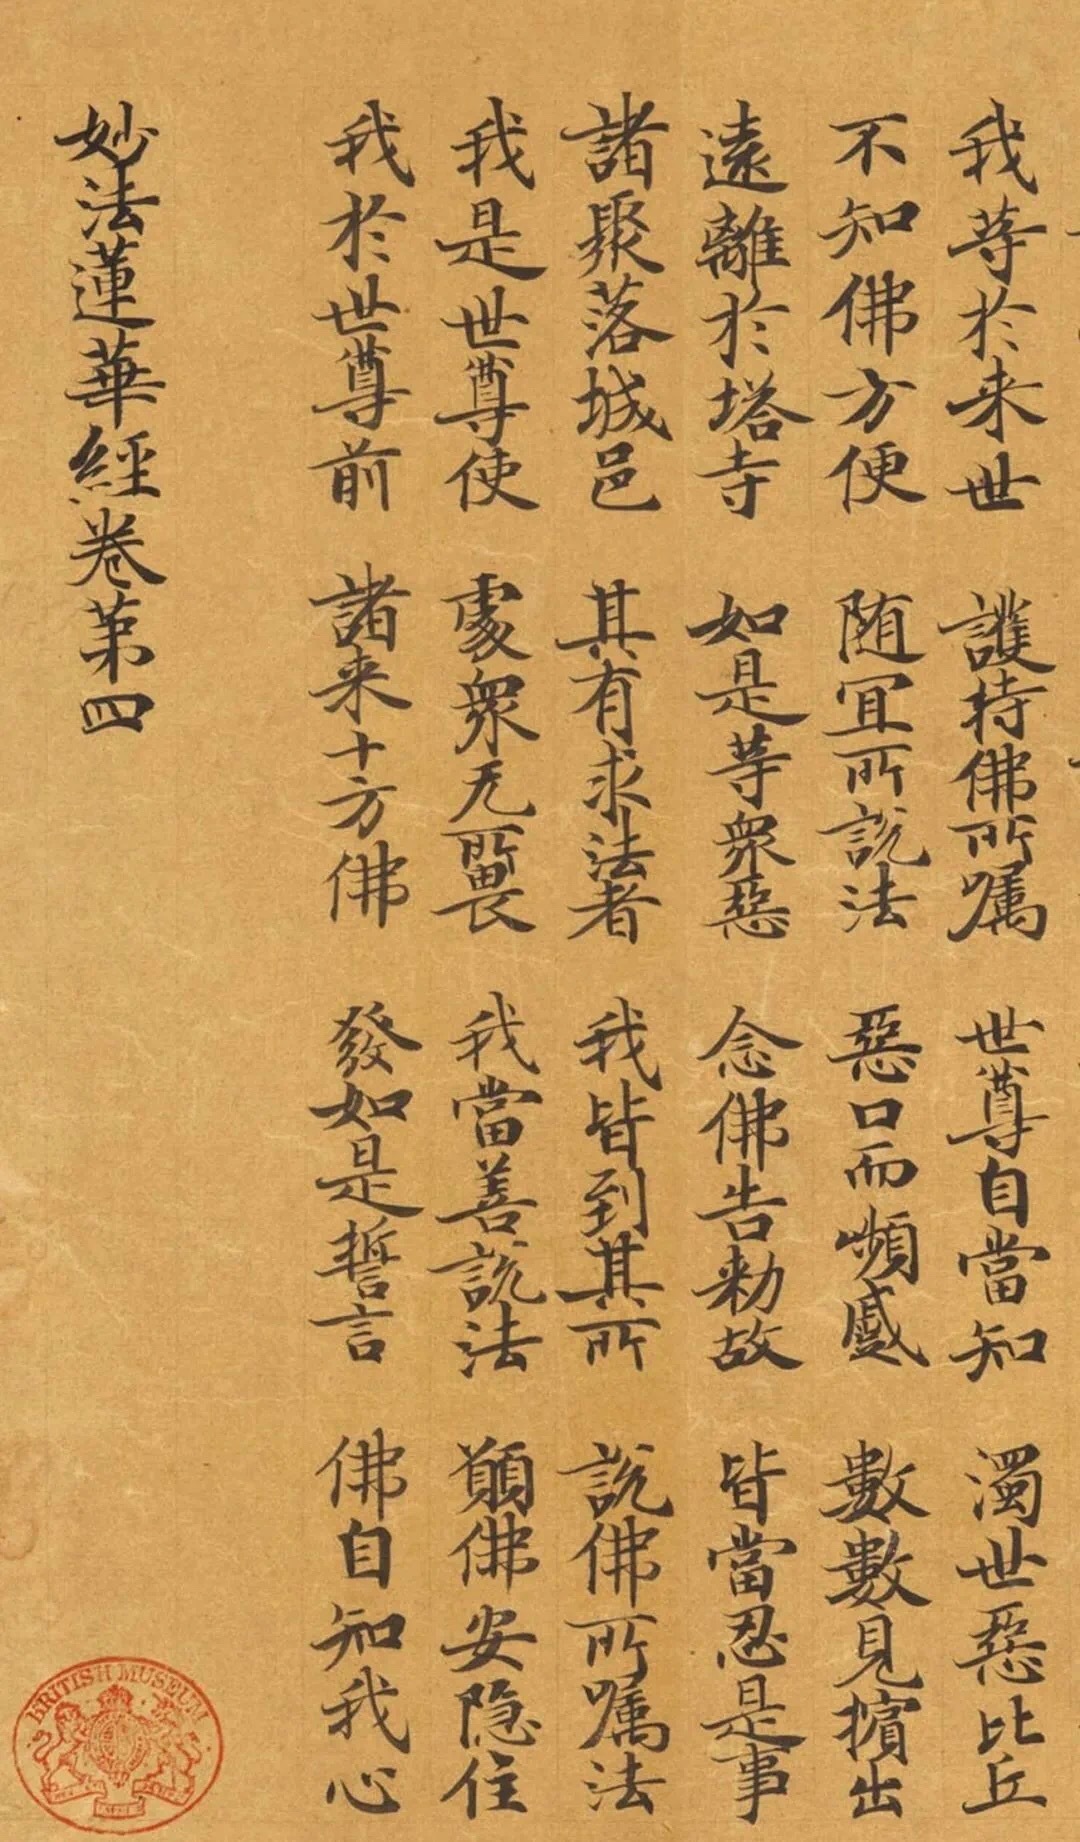 我等於来世 護持佛所嘱 世尊自當知 濁世惡比丘
不知佛方便 随宜所説法 惡口而嚬蹙 數數見擯出
遠離於塔寺 如是等衆惡 念佛告勑故 皆當忍是事
諸聚落城邑 其有求法者 我皆到其所 説佛所嘱法
我是世尊使 處衆无所畏 我當善説法 願佛安隐住
我於世尊前 諸来十方佛 發如是誓言 佛自知我心
妙法蓮華經卷第四
BRITISH MUSEUM